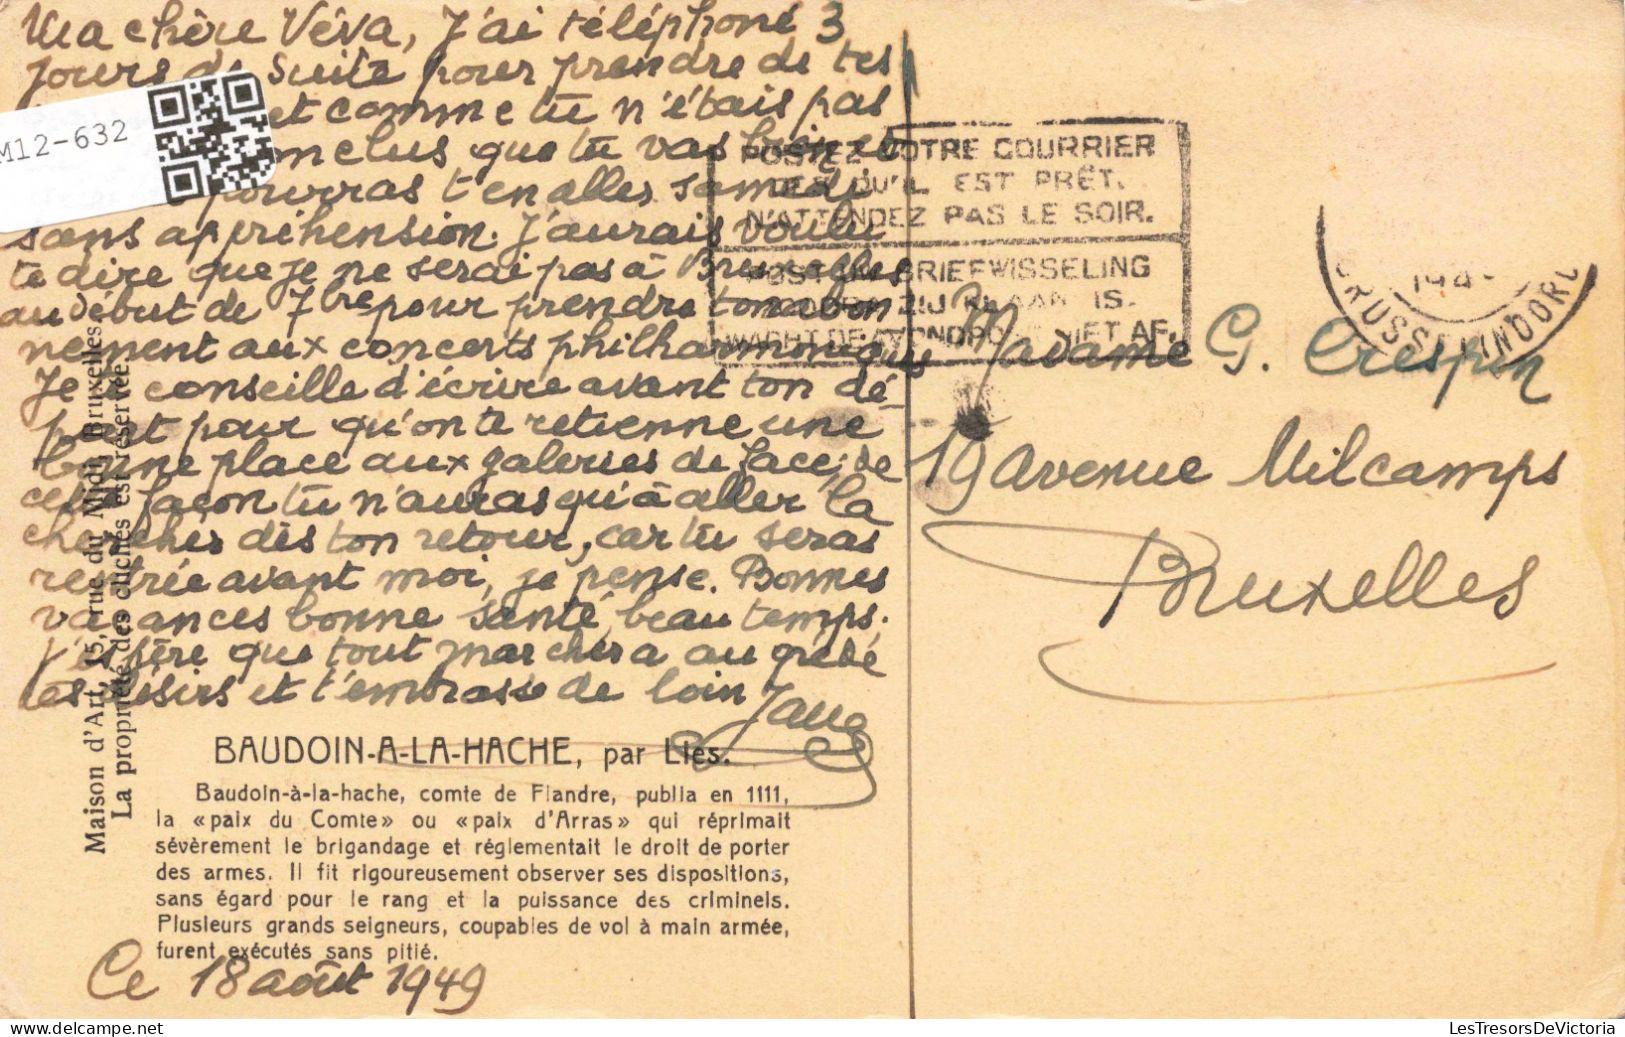 Ma chère Véva, J'ai téléphoné 3
jours de suite pour prendre de tes
et comme tu n'étais pas
conclus que tu vas bien et
pourras t'en aller samedi
sans appréhension. J'aurais voulu
te dire que je ne serai pas à Bruxelles
au début de 7bre pour prendre ton abon
nement aux concerts philharmoniques
Je te conseille d'écrire avant ton dé-
part pour qu'on te retienne une
bonne place aux galeries de face; de
cette façon tu n'auras qu'à aller la
chercher dès ton retour, car tu seras
rentrée avant moi, je pense. Bonnes
vacances bonne santé, beau temps.
J'espère que tout marchera au gré de
tes désirs et t'embrasse de loin
BAUDOIN-A-LA-HACHE, par Lies.
Baudoin-à-la-hache, comte de Flandre, publia en 1111,
la «paix du Comte» ou «paix d'Arras» qui réprimait
sévèrement le brigandage et réglementait le droit de porter
des armes. Il fit rigoureusement observer ses dispositions,
sans égard pour le rang et la puissance des criminels.
Plusieurs grands seigneurs, coupables de vol à main armée,
furent exécutés sans pitié.
Ce 18 août 1949
Maison d'Art, 15, rue du Midi, Bruxelles
La propriété des clichés est réservée.
M12-632
POSTEZ VOTRE COURRIER
DES QU'IL EST PRÊT.
N'ATTENDEZ PAS LE SOIR.
BRIEFWISSELING
ZIJ KLAAR IS.
WACHT DE AVOND NIET AF.
Madame G. Crespin
19 avenue Milcamps
Bruxelles
LesTresorsDeVictoria